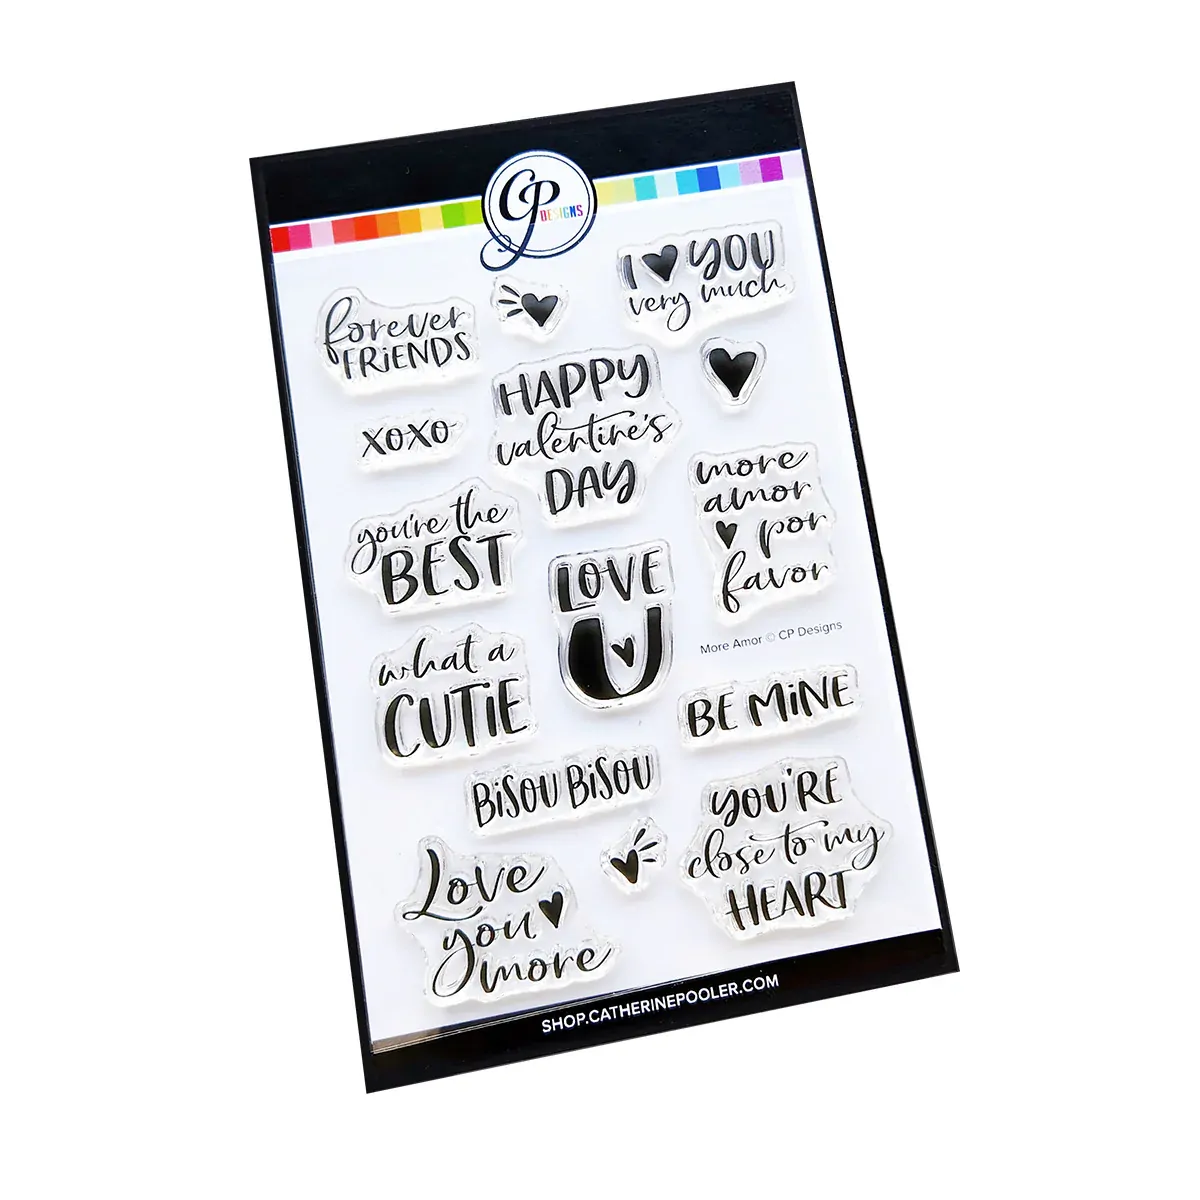 CP
DESIGNS
I YOU
very much
forever
FRiENDS
HAPPY
valentine's
DAY
xoxo
more
amor
por
favor
you're the
BEST
LOVE
U
More Amor © CP Designs
what a
CUTiE
BE MiNE
BiSOU BiSOU
YOU'RE
close to my
HEART
Love
you
more
SHOP.CATHERINEPOOLER.COM